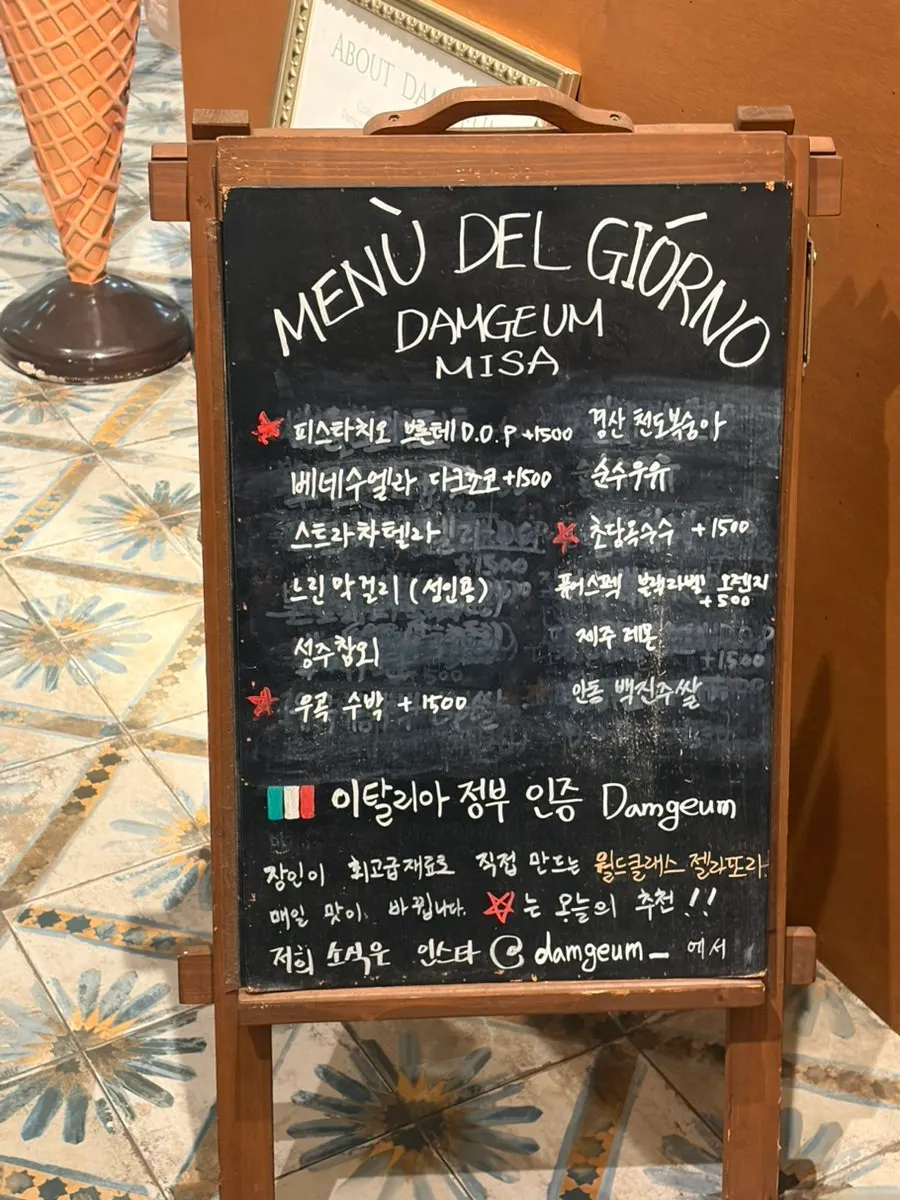 ABOUT DA
MENÙ DEL GIÓRNO
DAMGEUM
MISA
피스타치오 브론테 D.O.P +1500
베네수엘라 다크초코 +1500
스트라챠텔라
느린 막걸리 (성인용)
성주참외
우곡 수박 + 1500
경산 천도복숭아
순수우유
초당옥수수 +1500
퓨어스펙 블랙라벨 오렌지
+500
제주 레몬
안동 백진주쌀
이탈리아 정부 인증 Damgeum
장인이 최고급재료로 직접 만드는 월드클래스 젤라또라
매일 맛이 바뀝니다. ☆는 오늘의 추천!!
저희 소식은 인스타 @damgeum_ 에서